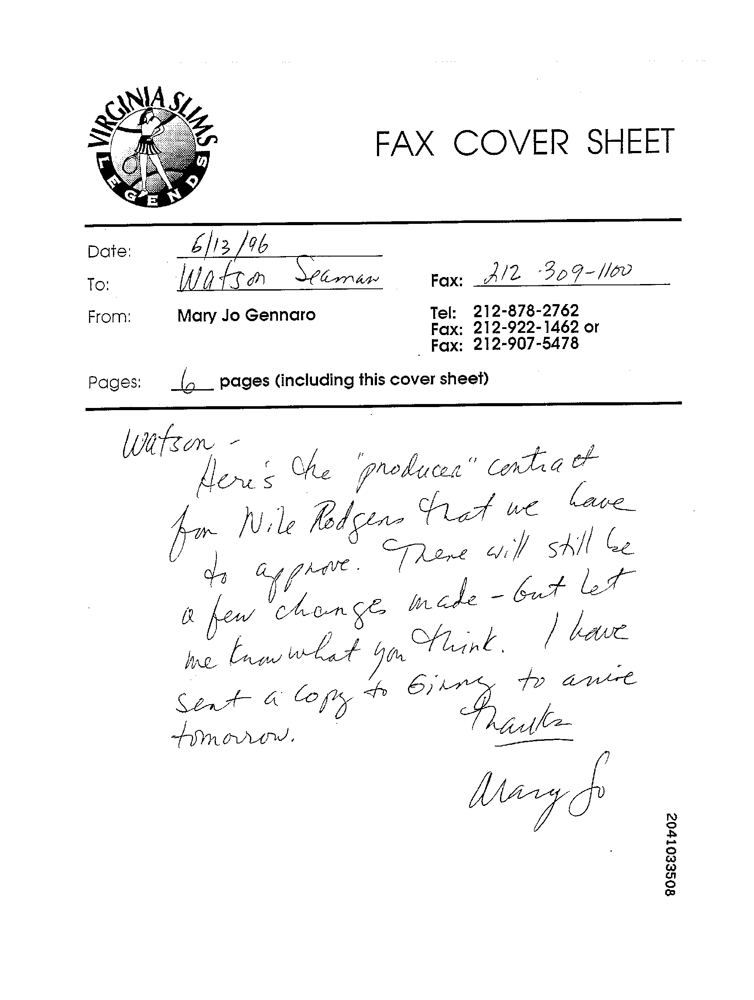 VIRGINIA SLIMS
LEGENDS
FAX COVER SHEET
Date: 6/13/96
To: Watson Seaman Fax: 212-309-1100
From: Mary Jo Gennaro Tel: 212-878-2762
Fax: 212-922-1462 or
Fax: 212-907-5478
Pages: 6 pages (including this cover sheet)
Watson -
Here's the "producer" contract
for Nile Rodgers that we have
to approve. There will still be
a few changes made - but let
me know what you think. I have
sent a copy to Ginny to arrive
tomorrow. Thanks
Mary Jo
2041033508